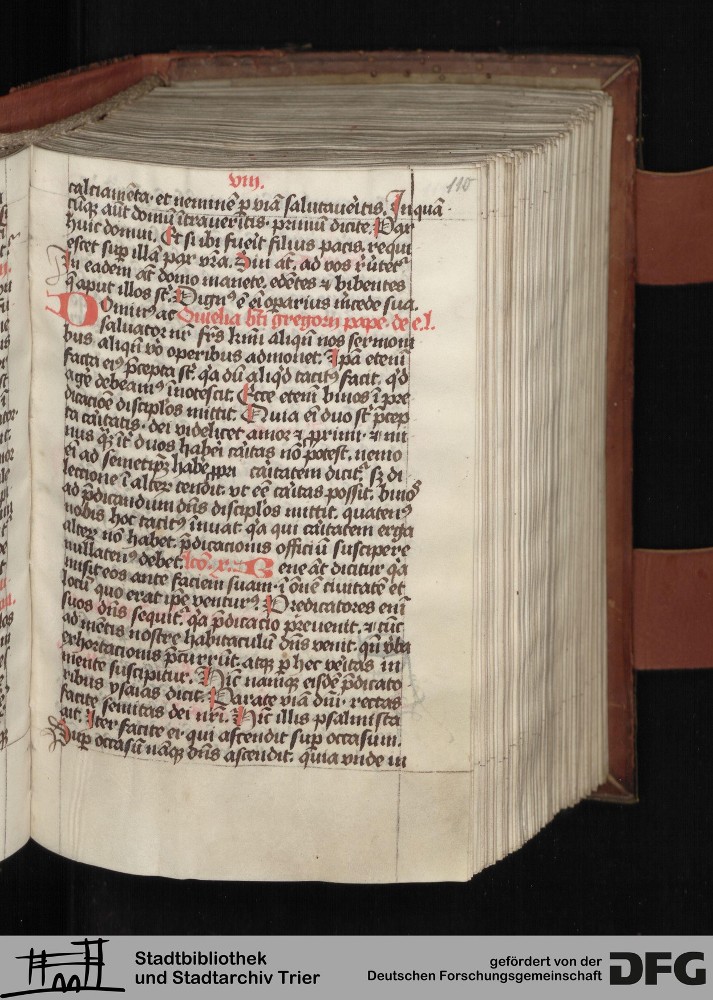 viij.
110
calciamēta. et neminē p viā salutaueritis. In quā
cūq̄ aūt domū ītraueritis. primū dicite. Pax
huic domui. Et si ibi fuerit filius pacis. requi
escet sup illā pax vr̄a. Sin at. ad vos rūtet᷑
In eadem at domo manete. edētes ⁊ bibentes
q̄ aput illos st̄. Dignꝰ ē ei opariusmercede sua.
Dominꝰ ac Omelia bt̄i gregorij pape. de e. l.
saluator nr̄ frs̄ kmi aliqn̄ nos sermoni
bus aliqn̄ vo operibus admonet. Ipa eteni
facta eiꝰ p̄cepta st̄. q̄a dū aliq̄d tacitꝰ facit. q̄d
agē debeamꝰ īnotescit. Ecce eteni binos ī pre
dicacōe disciplos mittit. Quia ei duo st̄ p̄cep
ta caritatis. dei videlicet amor ⁊ primi. ⁊ mi
nus q̄ īt duos haberi caritas nō potest. nemo
ei ad semetipȝ habe ppri caritatem dicit᷑. sȝ di
lectione ī alterȝ tendit. vt eē caritas possit. binoꝰ
ad p̄dicandum dn̄s disciplos mittit. quatenꝰ
nobis hoc tacitꝰ īnuat. q̄a qui caritatem erga
alterȝ nō habet. p̄dicacionis officiū suscipere
nullatenꝰ debet. lcō. x. Bene at dicitur q̄a
misit eos ante faciem suam. ī ōnē ciuitatē et
locū quo erat ipe venturꝰ. Predicatores enī
suos dn̄s sequit᷑. q̄a p̄dicacio preuenit. ⁊ tūc
ad mētis nostre habitaculū dn̄s venit. qn̄ v̄ba
exhortacionis p̄currūt. atq̄ p hoc vēitas in
mente suscipitur. Hīc namq̄ eisdē p̄dicato
ribus ysaias dicit. Parate viā dn̄i. rectas
facite semitas dei nr̄i. Hīc illis psalmista
ait. Iter facite ei. qui ascendit sup occasum.
Sup occasū nāq̄ dn̄s ascendit. quia vnde in
Stadtbibliothek
und Stadtarchiv Trier
gefördert von der
Deutschen Forschungsgemeinschaft
DFG